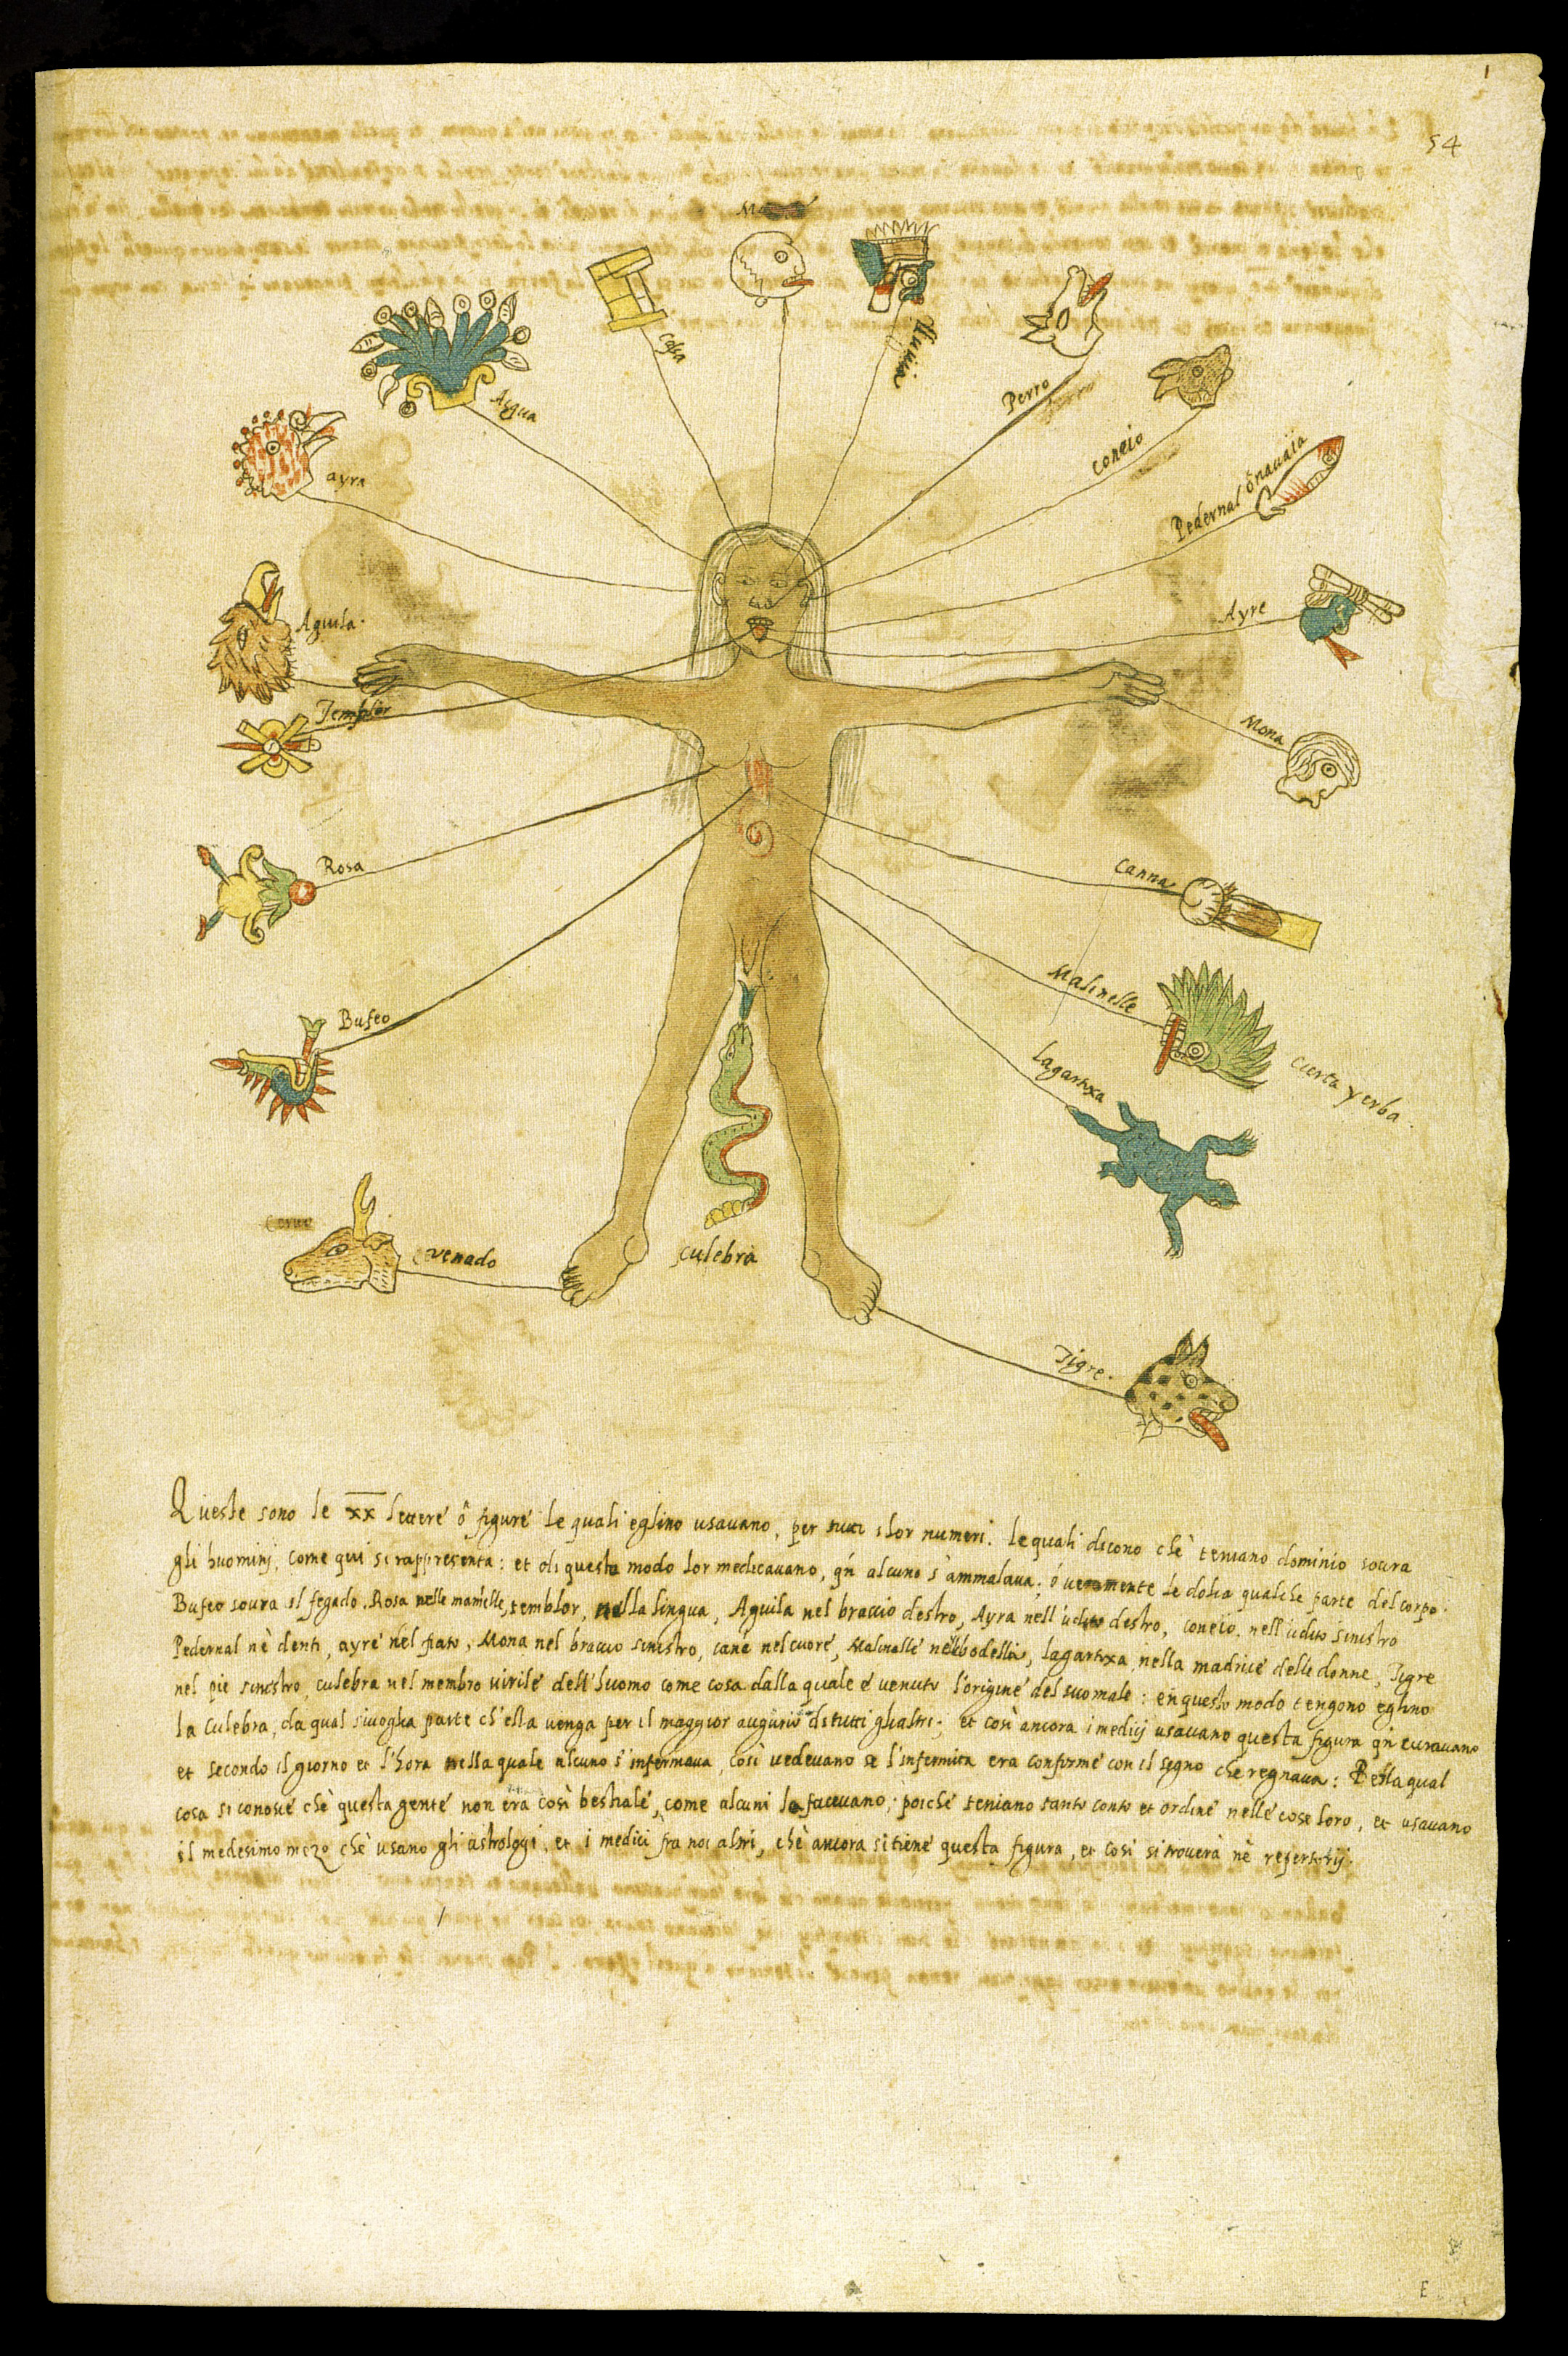 1
54
Casa
Lluvia
Perro
Agua
coneio
ayra
Pedernal ò navaia
Ayre
Aguila.
Temblor
Mona
Rosa
Canna
Malinelle
Bufeo
cierta yerba.
lagartixa
Cervo
venado
culebra
Tigre.
Queste sono le xx lettere ò figure le quali eglino usavano, per tutti i lor numeri. le quali dicono chè teniano dominio sovra
gli huominj, come qui si rappresenta: et di questo modo lor medicavano, qñ alcuno s'ammalava; ó veramente le dolia qualche parte del corpo.
Bufeo sovra il fegado. Rosa nelle mamelle, temblor, nella lingua, Aguila nel braccio destro, Ayra nell'udito destro, coneio. nell'udito sinistro
Pedernal nè denti, ayre nel fiato, Mona nel braccio sinistro, cane nel cuore, Malinalle nelli bodelli, lagartixa nella madrice delle donne, Tigre
nel pie sinistro, culebra nel membro virile dell'huomo come cosa dalla quale é venuto l'origine del suo male: en questo modo tengono eglino
la culebra, da qual sivoglia parte ch'ella venga per il maggior augurio di tutti gli altri; et così ancora i medicij usavano questa figura qñ curavano
et secondo il giorno et l'hora nella quale alcuno s'infermava, così vedevano se l'infermita era conforme con il segno che regnava: Della qual
cosa si conosce chè questa gente non era così bestiale, come alcuni la facevano; poiche teniano tanto conto et ordine nelle cose loro, et usavano
il medesimo mezo chè usano gli astrologi, et i medici fra noi altri, chè ancora si tiene questa figura, et così si troverà nè repertorij.
E